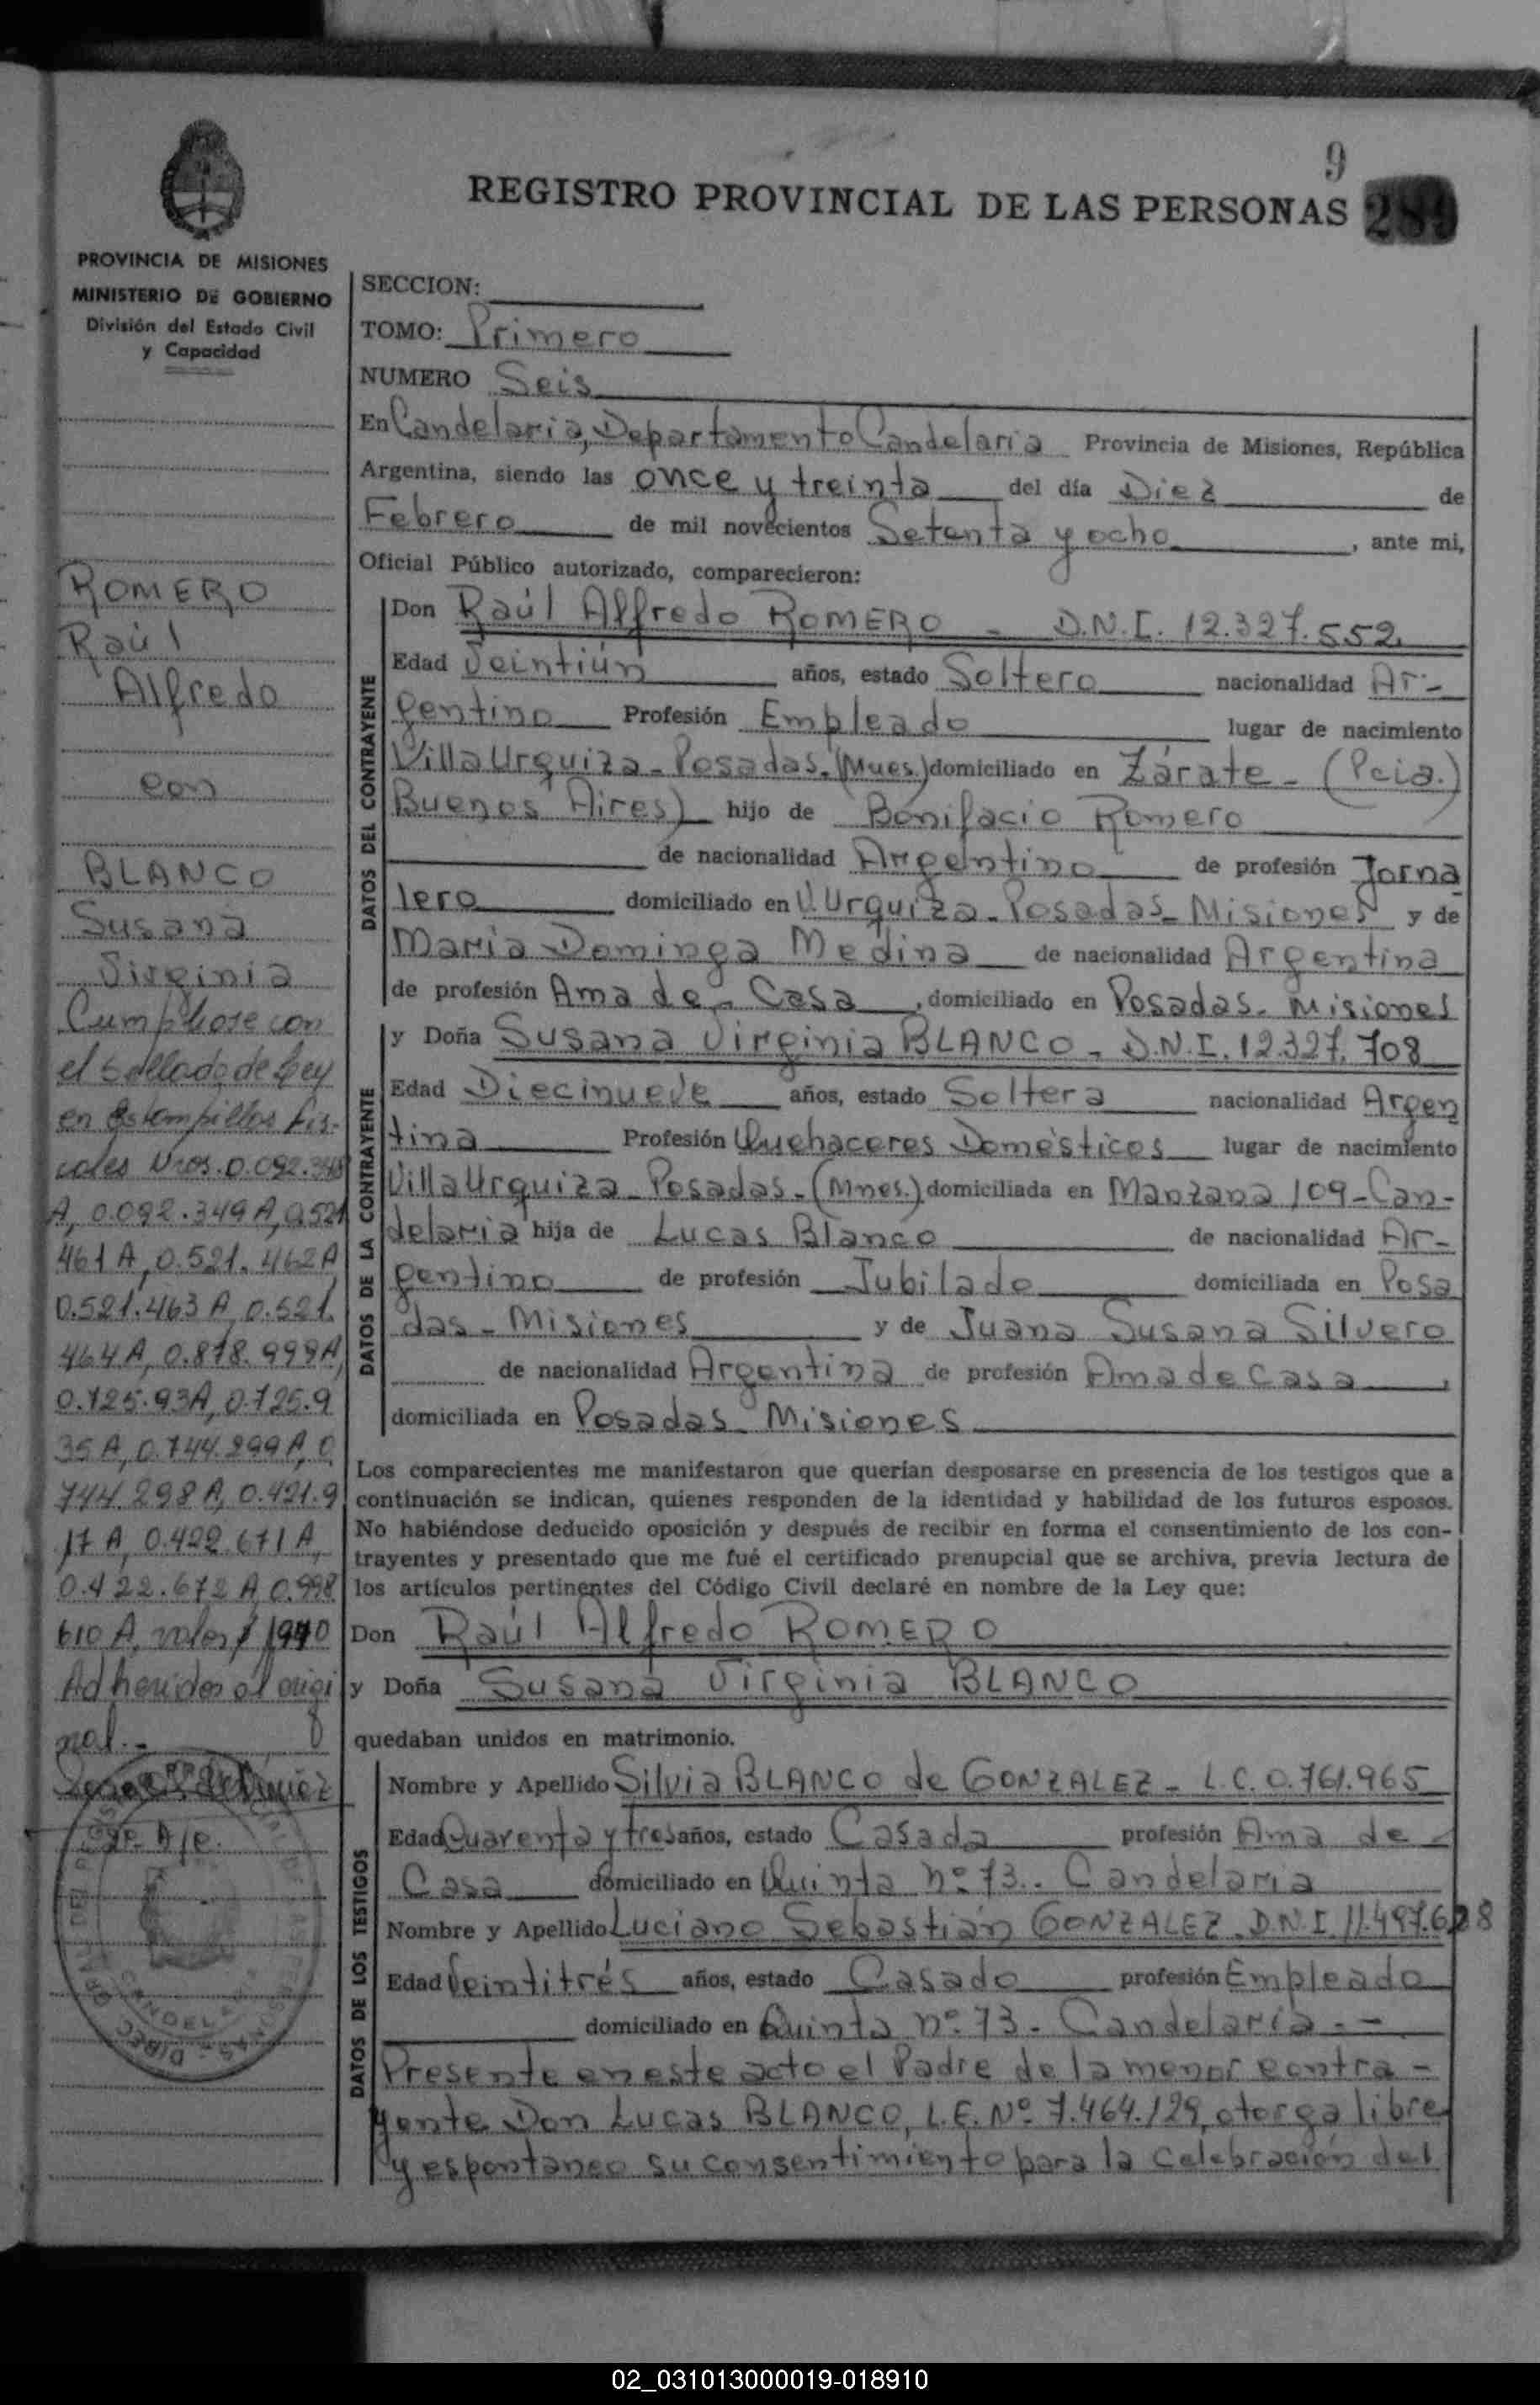 9
REGISTRO PROVINCIAL DE LAS PERSONAS 289
PROVINCIA DE MISIONES
MINISTERIO DE GOBIERNO
División del Estado Civil
y Capacidad
ROMERO
Raúl
Alfredo
con
BLANCO
Susana
Virginia
Cumplióse con
el sellado de Ley
en Estampillas fis-
cales Nros. 0.092.348
A, 0.092.349 A, 0.521
461 A, 0.521.462 A
0.521.463 A, 0.521.
464 A, 0.878.999 A,
0.725.93A, 0.725.9
35 A, 0.744.299 A, 0
744.298 A, 0.421.9
17 A, 0.422.671 A,
0.422.672 A, 0.998
610 A, valor $ 1940
Adheridos al origi
nal.-
SECCION:
TOMO: Primero
NUMERO Seis
En Candelaria, Departamento Candelaria Provincia de Misiones, República
Argentina, siendo las once y treinta del día Diez de
Febrero de mil novecientos Setenta y ocho, ante mi,
Oficial Público autorizado, comparecieron:
DATOS DEL CONTRAYENTE
Don Raúl Alfredo ROMERO - D.N.I. 12.327.552
Edad Veintiún años, estado Soltero nacionalidad Ar-
gentino Profesión Empleado lugar de nacimiento
Villa Urquiza - Posadas. (Mnes.) domiciliado en Zárate - (Pcia.)
Buenos Aires) hijo de Bonifacio Romero
de nacionalidad Argentino de profesión Jorna
lero domiciliado en V. Urquiza - Posadas - Misiones y de
María Dominga Medina de nacionalidad Argentina
de profesión Ama de - Casa, domiciliado en Posadas - Misiones
DATOS DE LA CONTRAYENTE
y Doña Susana Virginia BLANCO - D.N.I. 12.327.708
Edad Diecinueve años, estado Soltera nacionalidad Argen
tina Profesión Quehaceres Domésticos lugar de nacimiento
Villa Urquiza - Posadas - (Mnes.) domiciliada en Manzana 109 - Can-
delaria hija de Lucas Blanco de nacionalidad Ar-
gentino de profesión Jubilado domiciliada en Posa
das - Misiones y de Juana Susana Silvero
de nacionalidad Argentina de profesión Ama de Casa,
domiciliada en Posadas - Misiones
Los comparecientes me manifestaron que querían desposarse en presencia de los testigos que a
continuación se indican, quienes responden de la identidad y habilidad de los futuros esposos.
No habiéndose deducido oposición y después de recibir en forma el consentimiento de los con-
trayentes y presentado que me fué el certificado prenupcial que se archiva, previa lectura de
los artículos pertinentes del Código Civil declaré en nombre de la Ley que:
Don Raúl Alfredo ROMERO
y Doña Susana Virginia BLANCO
quedaban unidos en matrimonio.
DATOS DE LOS TESTIGOS
Nombre y Apellido Silvia BLANCO de GONZALEZ - L.C. 0.761.965
Edad Cuarenta y tres años, estado Casada profesión Ama de -
Casa domiciliado en Quinta nº 73.. Candelaria
Nombre y Apellido Luciano Sebastián GONZALEZ. D.N.I. 11.497.628
Edad Veintitrés años, estado Casado profesión Empleado
domiciliado en Quinta nº 73 - Candelaria. -
Presente en este acto el Padre de la menor contra -
yente Don Lucas BLANCO, L.E. Nº 7.464.129, otorga libre
y espontaneo su consentimiento para la celebración del
02_031013000019-018910